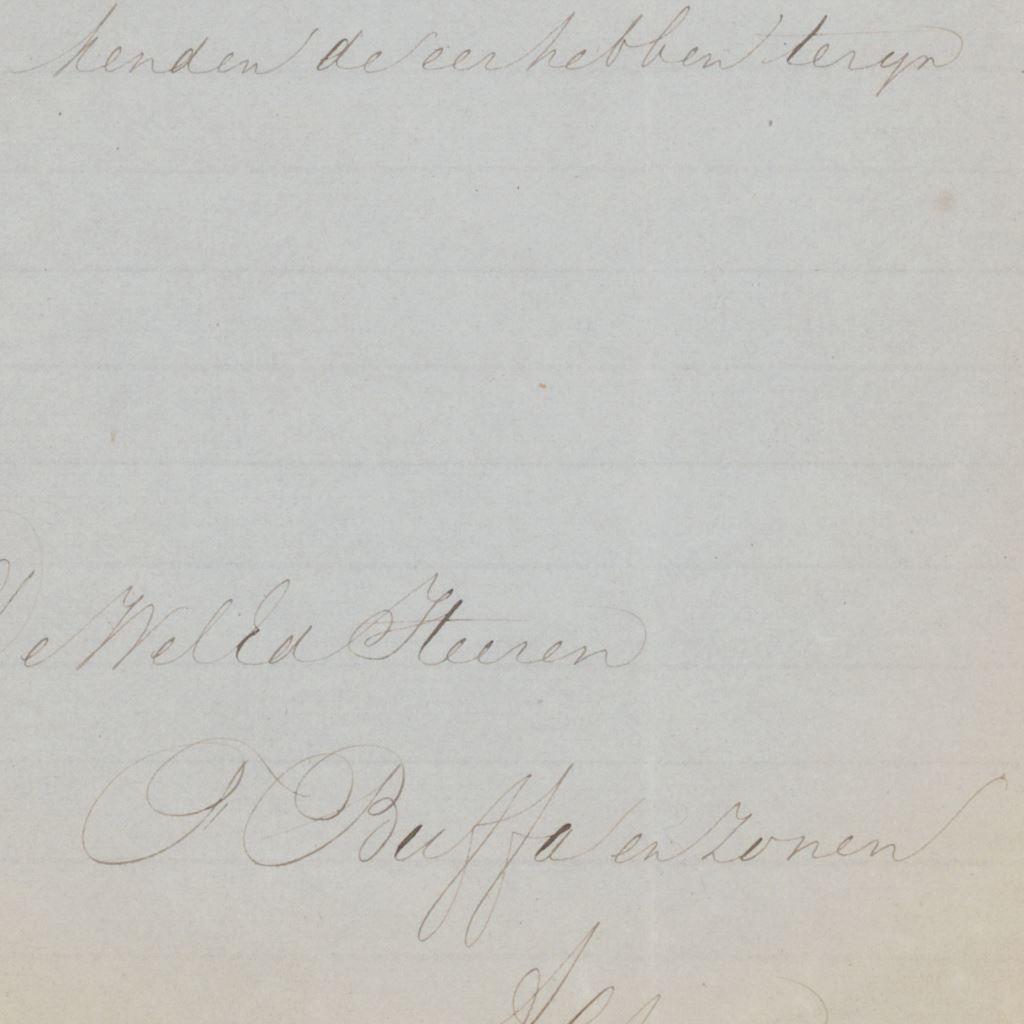 kenden de eer hebben te zyn
De WelEd Heeren
P Buffa en Zonen